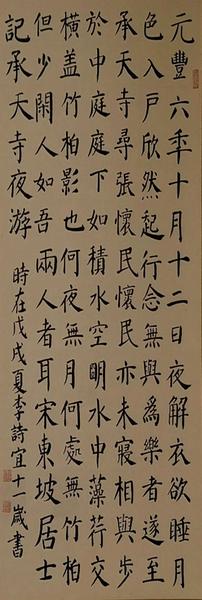 元豐六秊十月十二日夜解衣欲睡月
色入戶欣然起行念無與爲樂者遂至
承天寺尋張懷民懷民亦未寢相與步
於中庭庭下如積水空明水中藻荇交
橫盖竹柏影也何夜無月何處無竹柏
但少閑人如吾兩人者耳宋東坡居士
記承天寺夜游
時在戊戌夏李詩宜十一歲書